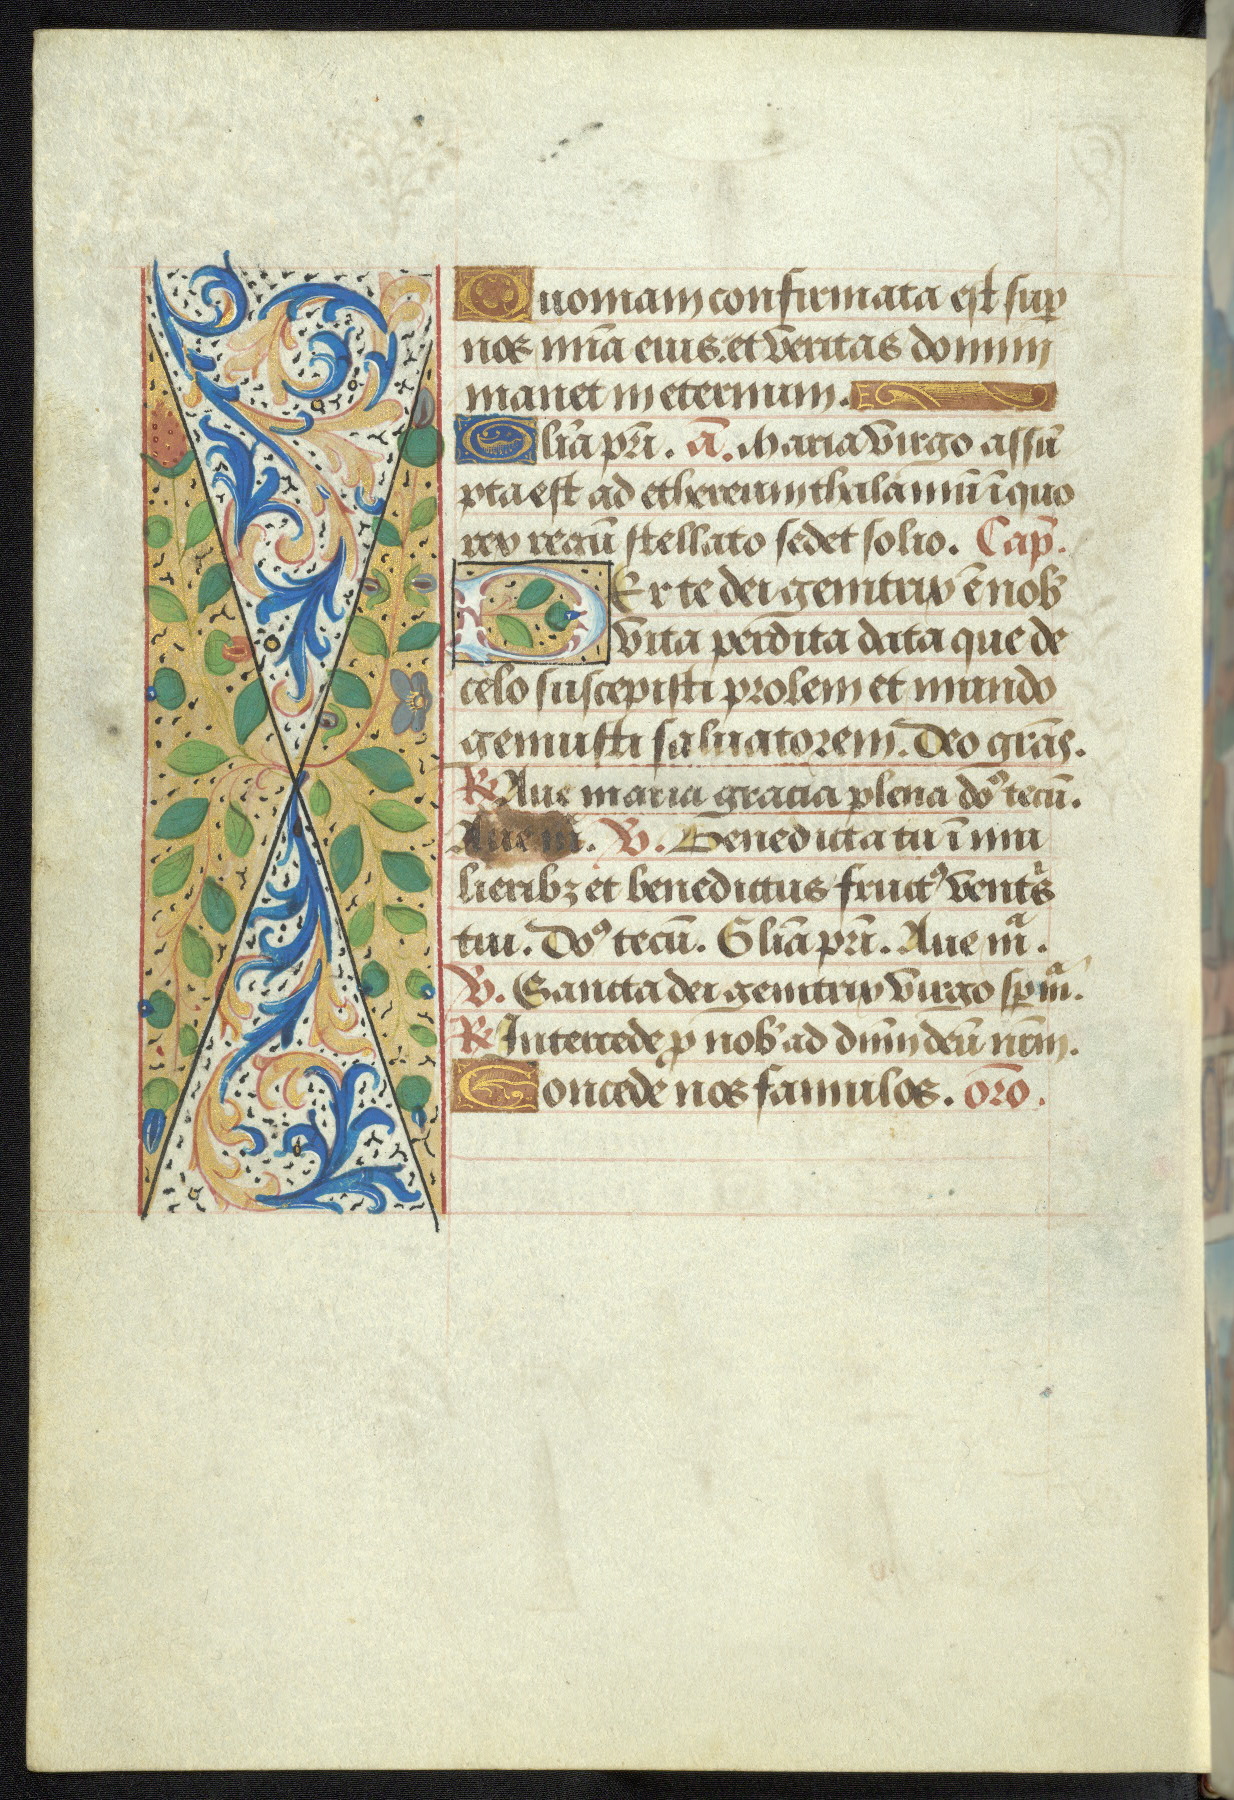 Quoniam confirmata est sup̲
nos mi̅a eius. et veritas domini
manet in eternum.
Gli̅a pr̅i. a̅. Maria virgo assu̅
pta est ad ethereum thalamu̅ i̅ quo
rex regu̅ stellato sedet solio. Cap̅.
PEr te dei genitrix e̅ nob̅
vita perdita data que de
celo suscepisti prolem et mundo
genuisti saluatorem. Deo gr̅as.
℟ Aue maria gracia plena do⁹ tecu̅.
Aue m̅. ℣. Benedicta tu i̅ mu
lieribꝫ et benedictus fruct⁹ ventr̅s
tui. Do⁹ tecu̅. Gli̅a pr̅i. Aue mᵃ.
℣. Sancta dei genitrix virgo sp̅mᵃ.
℟ Intercede ꝓ nob̅ ad dn̅m deu̅ nr̅m.
Concede nos famulos. oro̅.